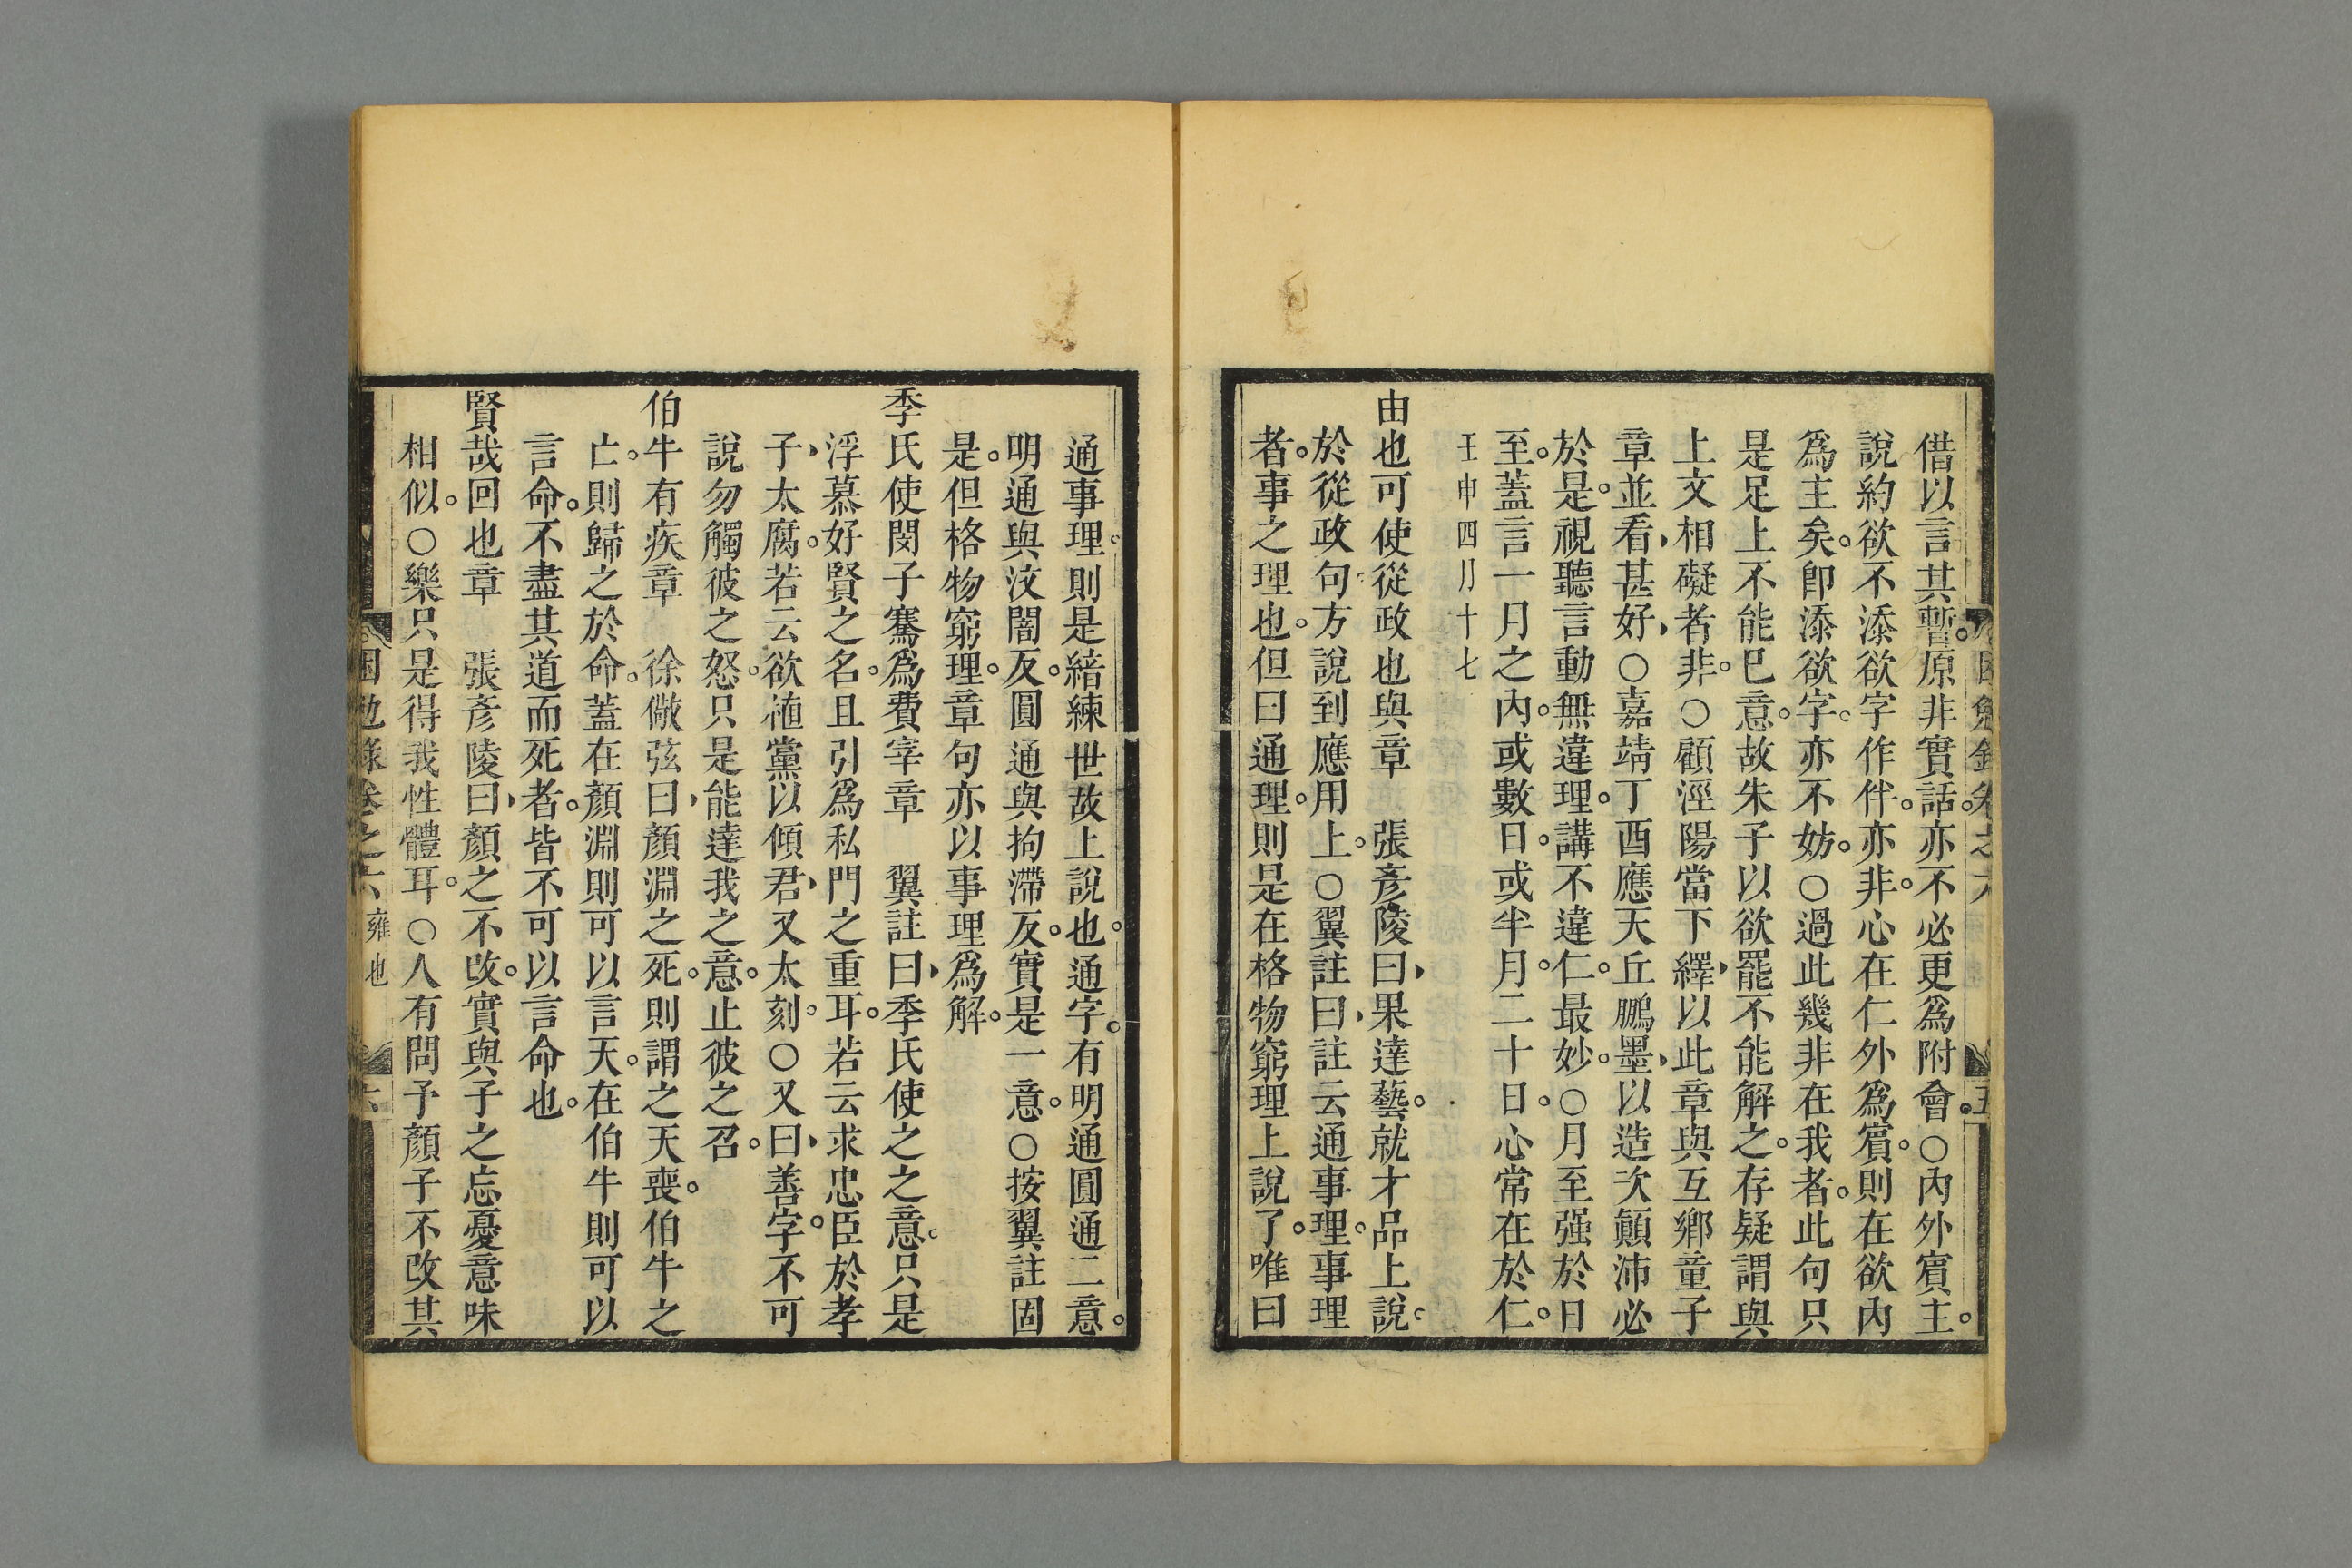 借以言其暫。原非實話。亦不必更爲附會。○內外賓主。
說約欲不添欲字作伴。亦非。心在仁外爲賓。則在欲內
爲主矣。卽添欲字。亦不妨。○過此幾非在我者。此句只
是足上不能巳意。故朱子以欲罷不能解之。存疑謂與
上文相礙者非。○顧涇陽當下繹、以此章與互鄉童子
章並看、甚好、○嘉靖丁酉應天丘鵬墨、以造次顚沛必
於是。視聽言動無違理。講不違仁。最妙。○月至强於日
至。蓋言一月之內。或數日。或半月。二十日。心常在於仁。
壬申四月十七
由也可使從政也與章　張彥陵曰、果達藝。就才品上說。
於從政句。方說到應用上。○翼註曰、註云通事理。事理
者。事之理也。但曰通理。則是在格物窮理上說了。唯曰
通事理。則是綹練世故上說也。通字。有明通圓通二意。
明通與汶闇反。圓通與拘滯反。實是一意。○按翼註固
是。但格物窮理。章句亦以事理爲解。
季氏使閔子騫爲費宰章　翼註曰、季氏使之之意。只是
浮慕好賢之名。且引爲私門之重耳。若云求忠臣於孝
子、太腐。若云欲植黨以傾君、又太刻。○又曰、善字。不可
說勿觸彼之怒。只是能達我之意。止彼之召。
伯牛有疾章　徐儆弦曰、顏淵之死。則謂之天喪。伯牛之
亡。則歸之於命。蓋在顏淵則可以言天。在伯牛則可以
言命。不盡其道而死者。皆不可以言命也。
賢哉回也章　張彥陵曰、顏之不改。實與子之忘憂意味
相似。○樂只是得我性體耳。○人有問予顏子不改其
困勉錄卷之六 雍也 六